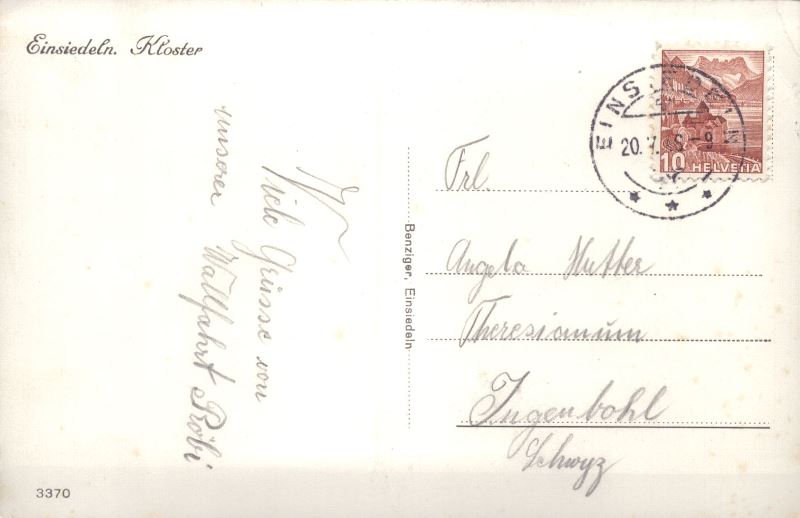 Einsiedeln. Kloster
Viele Grüsse von
unserer Wallfahrt Röbi
Benziger, Einsiedeln
EINSIEDELN
20. V. -9
10 HELVETIA
Frl.
Angela Hutter
Theresianum
Ingenbohl
Schwyz
3370